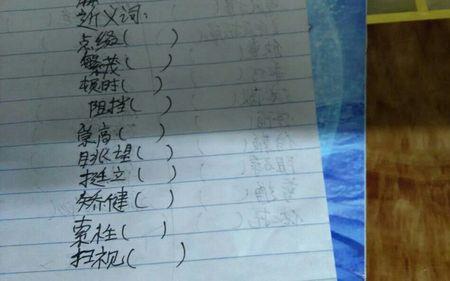 近义词:
点缀(　)
繁茂(　)
顿时(　)
阻挡(　)
崇高(　)
眺望(　)
挺立(　)
矫健(　)
索性(　)
扫视(　)